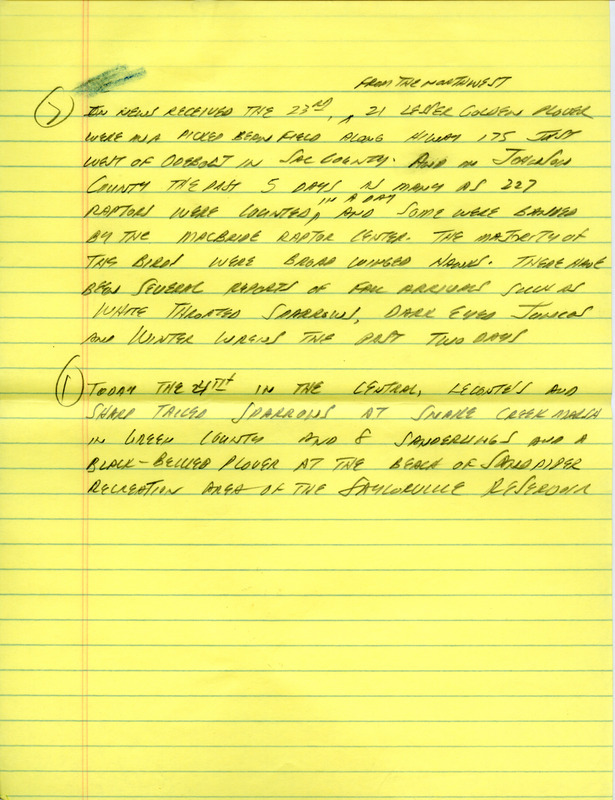 FROM THE NORTHWEST
2 IN NEWS RECEIVED THE 23RD, ^ 21 LESSER GOLDEN PLOVER
WERE IN A PICKED BEAN FIELD ALONG HIWAY 175 JUST
WEST OF ODEBOLT IN SAC COUNTY. AND IN JOHNSON
COUNTY THE PAST 5 DAYS AS MANY AS 227
IN A DAY
RAPTORS WERE COUNTED, ^ AND SOME WERE BANDED
BY THE MACBRIDE RAPTOR CENTER. THE MAJORITY OF
THE BIRDS WERE BROAD WINGED HAWKS. THERE HAVE
BEEN SEVERAL REPORTS OF FALL ARRIVALS SUCH AS
WHITE THROATED SPARROWS, DARK EYED JUNCOS
AND WINTER WRENS THE PAST TWO DAYS
1 TODAY THE 4TH IN THE CENTRAL, LECONTE'S AND
SHARP TAILED SPARROWS AT SNAKE CREEK MARSH
IN GREEN COUNTY AND 8 SANDERLINGS AND A
BLACK-BELLIED PLOVER AT THE BEACH OF SANDPIPER
RECREATION AREA OF THE SAYLORVILLE RESERVOIR